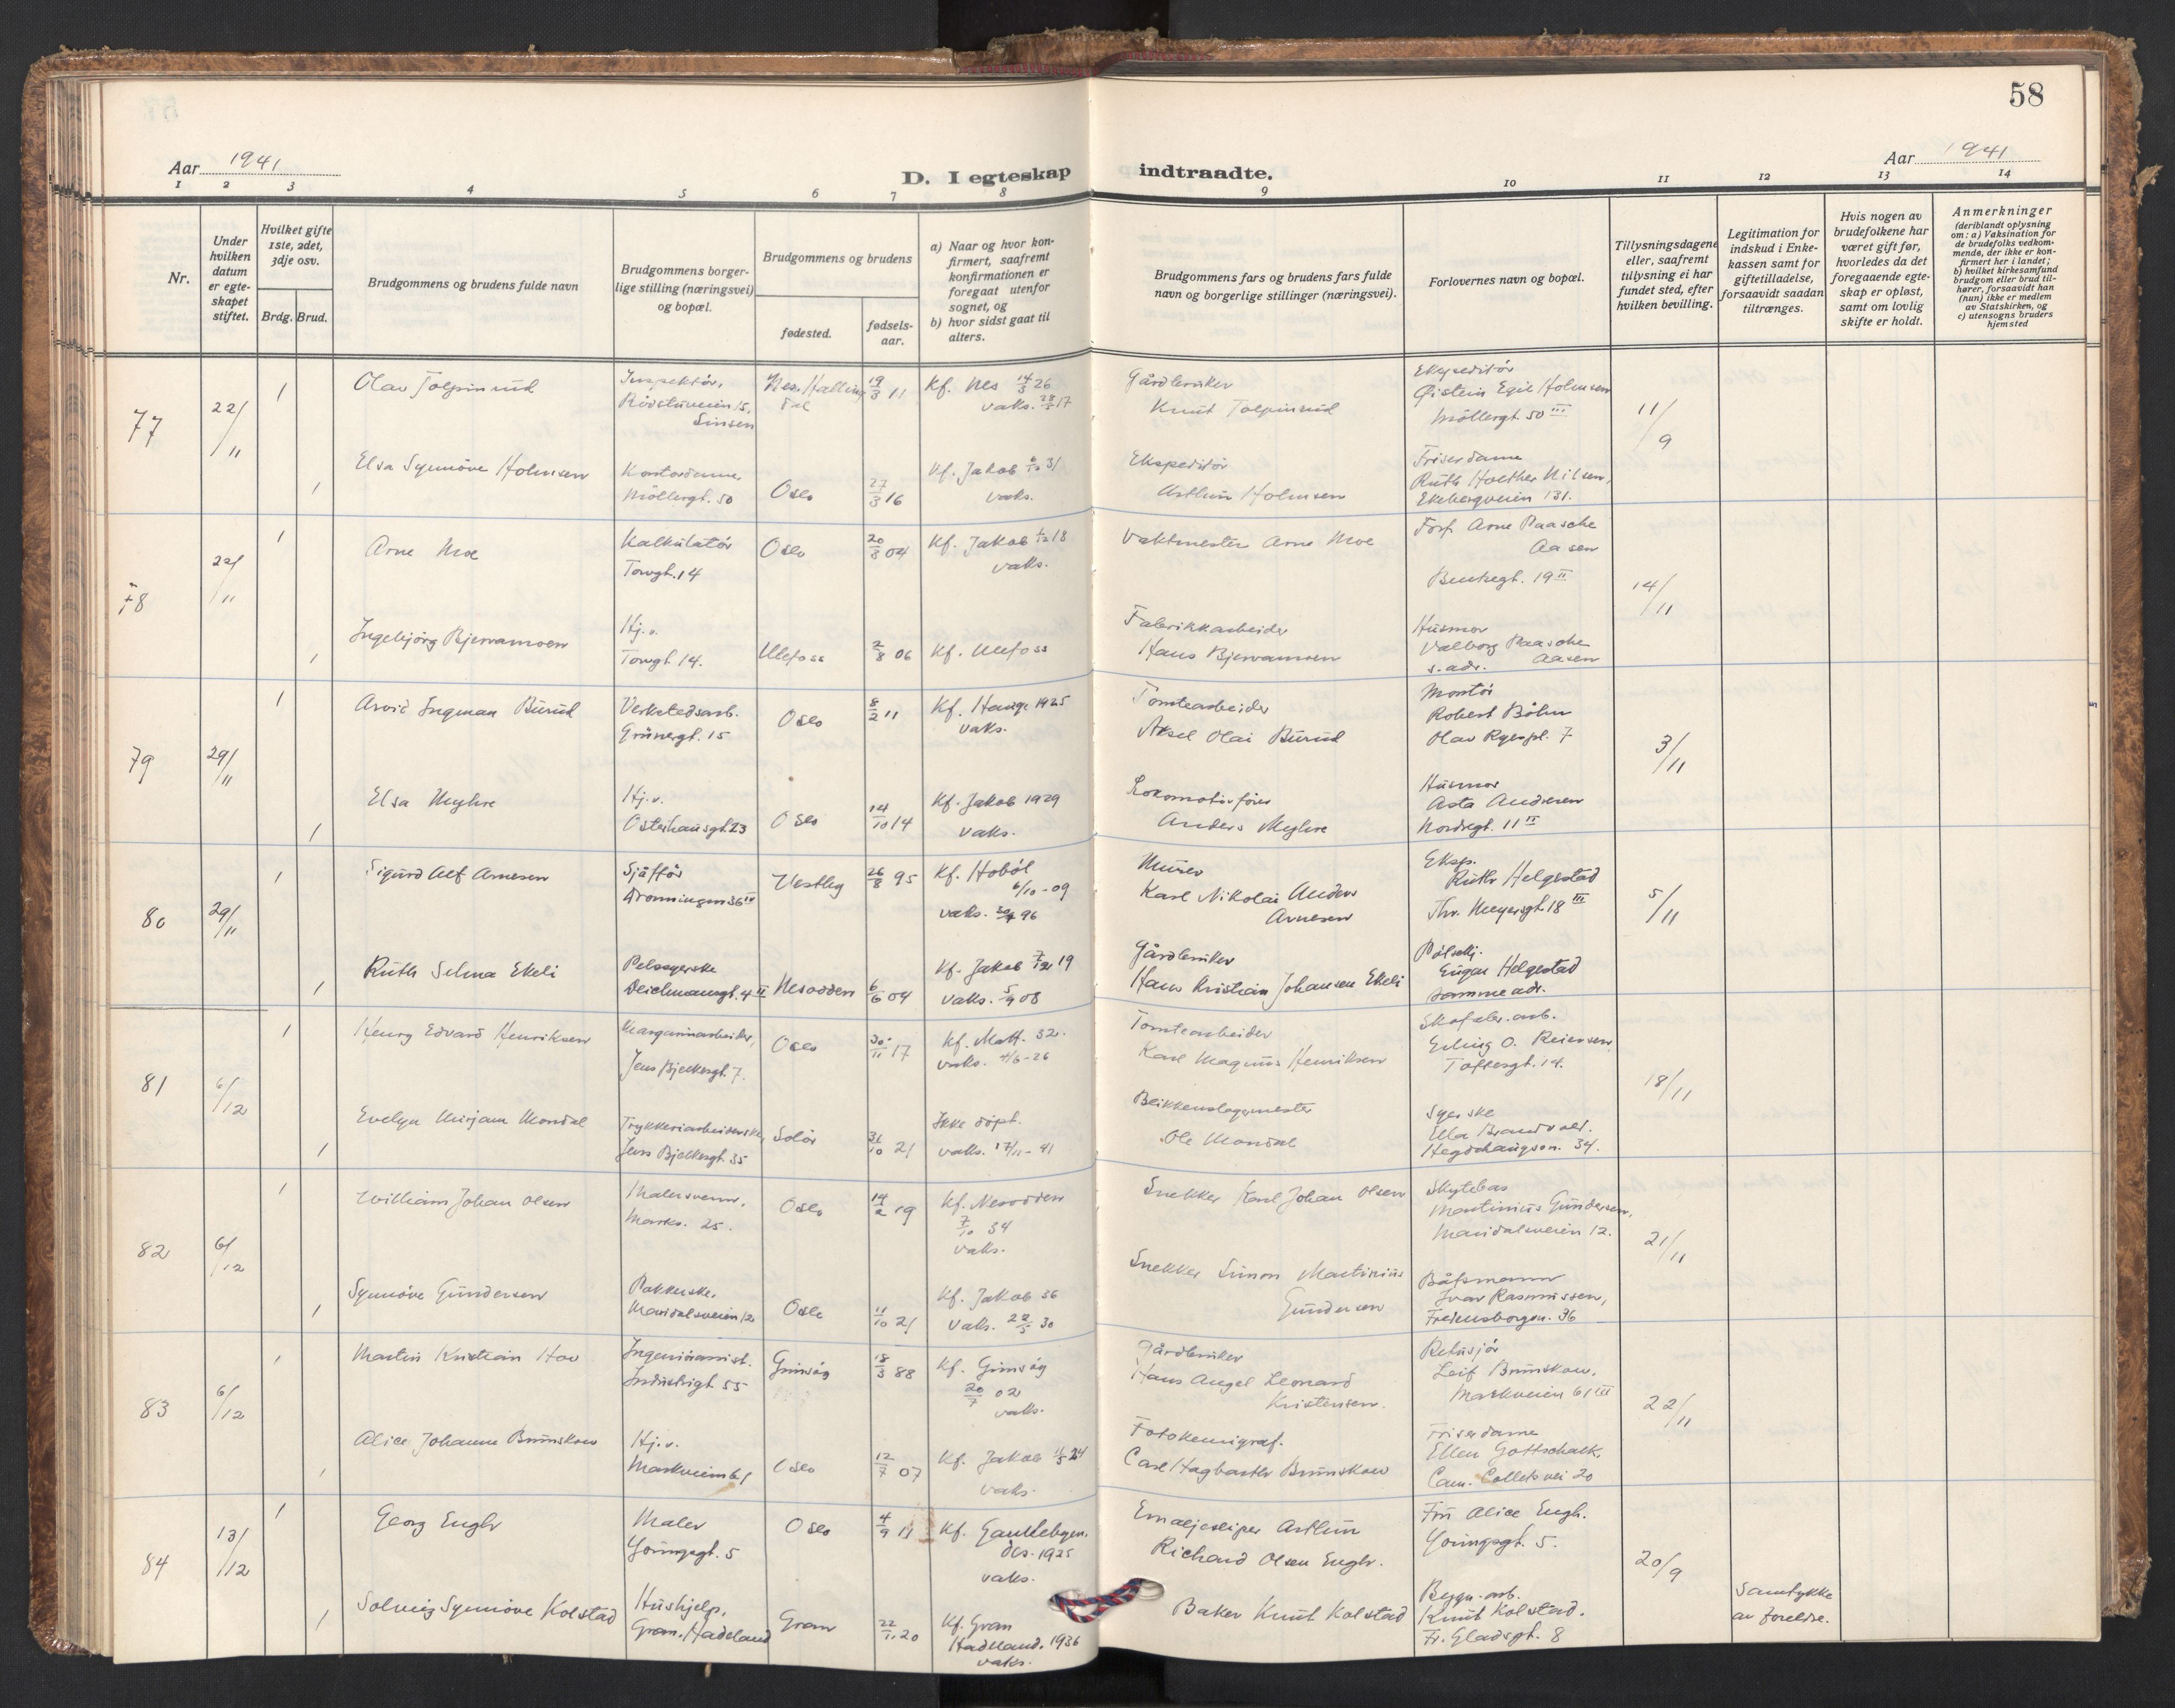 58
Aar 1941
D. I egteskap indtraadte.
Aar 1941
1 2 3 4 5 6 7 8 9 10 11 12 13 14
Nr.
Under hvilken datum er egteskapet stiftet.
Hvilket gifte 1ste, 2det, 3dje osv.
Brdg. Brud.
Brudgommens og brudens fulde navn
Brudgommens borgerlige stilling (næringsvei) og bopæl.
Brudgommens og brudens
fødested.
fødselsaar.
a) Naar og hvor konfirmert, saafremt konfirmationen er foregaat utenfor sognet, og
b) hvor sidst gaat til alters.
Brudgommens fars og brudens fars fulde navn og borgerlige stillinger (næringsvei).
Forlovernes navn og bopæl.
Tillysningsdagene eller, saafremt tillysning ei har fundet sted, efter hvilken bevilling.
Legitimation for indskud i Enkekassen samt for giftetilladelse, forsaavidt saadan tiltrænges.
Hvis nogen av brudefolkene har været gift før, hvorledes da det foregaaende egteskap er opløst, samt om lovlig skifte er holdt.
Anmerkninger (deriblandt oplysning om: a) Vaksination for de brudefolks vedkommende, der ikke er konfirmert her i landet; b) hvilket kirkesamfund brudgom eller brud tilhører, forsaavidt han (hun) ikke er medlem av Statskirken, og c) utensogns bruders hjemsted
77 22/11
1 Olav Tolpinrud
Inspektör,
Rödstuveien 15, Sinsen
Nes. Hallingdal 19/3 11
Kf. Nes 14/3 26
vaks. 17
Gårdbruker
Knut Tolpinrud
Ekspeditör
Öistein Egil Holmsen
Möllergt. 50 III
11/9
1 Elsa Synnöve Holmsen
Kontordame
Möllergt. 50
Oslo 27/3 16
Kf. Jakob 31
vaks.
Ekspeditör
Arthur Holmsen
Friserdame
Ruth Holther Nilsen,
Ekebergveien 131.
78 22/11
1 Arne Moe
Kalkulatör
Torvgt. 14
Oslo 20/8 04
Kf. Jakob 1/12 18
vaks.
Vaktmester Arne Moe
Forf. Arne Paasche Aasen
Bentsegt. 19 II
14/11
1 Ingebjörg Bjervamoen
Hj.v.
Torvgt. 14.
Ulefoss 2/8 06
Kf. Ulefoss
Fabrikkarbeider
Hans Bjervamoen
Husmor
Valborg Paasche Aasen
s. adr.
79 29/11
1 Arvid Ingman Burud
Verkstedsarb.
Grünergt. 15
Oslo 8/2 11
Kf. Hauge 1925
vaks.
Tomtearbeider
Aksel Olai Burud
Montör
Robert Böhn
Olav Ryespl. 7
3/11
1 Elsa Myhre
Hj.v.
Osterhausgt. 23
Oslo 14/10 14
Kf. Jakob 1929
vaks.
Lokomotivförer
Anders Myhre
Husmor
Asta Andresen
Nordregt. 11 II
80 29/11
1 Sigurd Alf Arnesen
Sjåfför
Dronningen 36 IV
Vestby 26/8 95
Kf. Hobøl
6/10 - 09
vaks. 96
Murer
Karl Nikolai Anders Arnesen
Eksp.
Ruth Helgestad
Thv. Meyersgt. 18 III
5/11
1 Ruth Selma Ekeli
Pelssyerske
Deichmannsgt. 4 II
Nesodden 6/6 04
Kf. Jakob 7/12 19
vaks. 5/9 08
Gårdbruker
Hans Kristian Johansen Ekeli
Eugen Helgestad
samme adr.
81 6/12
1 Henry Edvard Henriksen
Margarinarbeider,
Jens Bjelkesgt. 7.
Oslo 30/11 17
Kf. Matt. 32.
vaks. 4/6-26
Tomtearbeider
Karl Magnus Henriksen
Skofabr. arb.
Erling O. Reiersen,
Toftesgt. 14.
18/11
1 Evelyn Mirjam Mondal
Trykkeriarbeiderske,
Jens Bjelkesgt. 35
Solör 31/10 21
Ikke döpt.
vaks. 17/11 - 41
Blikkenslagermester
Ole Mondal
Syerske
Ella Brandvold.
Hegdehaugsvn. 34.
82 6/12
1 William Johan Olsen
Malersvenn,
Markv. 25.
Oslo 14/2 19
Kf. Nesodden
7/10 34
vaks.
Snekker Karl Johan Olsen
Skytebas
Martinius Gundersen,
Maridalsveien 12.
21/11
1 Synnöve Gundersen
Pakkerske,
Maridalsveien 12
Oslo 11/10 21
Kf. Jakob 36
vaks. 22/5 30
Snekker Simon Martinius Gundersen
Båtsmann
Ivar Rasmussen,
Fredensborgvn. 36
83 6/12
1 Martin Kristian Hov
Industrigt. 55
Grinsög 18/3 88
Kf. Grinsög
20/7 02
vaks.
Gårdbruker
Hans Angel Leonard Kristensen.
Retusjör
Leif Brunskow,
Markveien 61 III
22/11
1 Alice Johanne Brunskow
Hj.v.
Markveien 61
Oslo 12/7 07
Kf. Jakob 24
vaks.
Fotokemigraf.
Carl Hagbarth Brunskow
Friserdame
Ellen Gottschalk,
Cam. Colletts vei 20
84 13/12
1 Georg Engh
Maler
Youngsgt. 5
Oslo 4/9 11
Kf. Gamlebyen.
des. 1925
vaks.
Emaljesliper Arthur
Richard Olsen Engh.
Fru Alice Engh.
Youngsgt. 5.
20/9
1 Solveig Synnöve Kolstad
Hushjelp,
Gran. Hadeland
Gran 22/1 20
Kf. Gran
Hadeland. 1936
vaks.
Baker Knut Kolstad
Bygn. arb.
Knut Kolstad.
Fr. Gladsgt. 8
Samtykke
av foreldre.